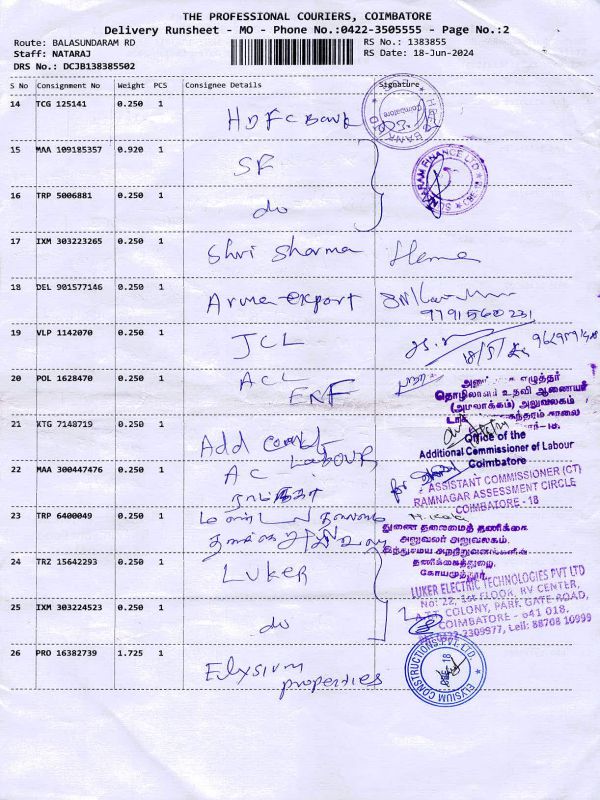 THE PROFESSIONAL COURIERS, COIMBATORE
Delivery Runsheet - MO - Phone No.:0422-3505555 - Page No.:2
Route: BALASUNDARAM RD RS No.: 1383855
Staff: NATARAJ RS Date: 18-Jun-2024
DRS No.: DCJB138385502
S No Consignment No Weight PCS Consignee Details Signature
14 TCG 125141 0.250 1 HDFC Bank
15 MAA 109185357 0.920 1 SF
16 TRP 5006881 0.250 1 do
17 IXM 303223265 0.250 1 Shri Sharma Hema
18 DEL 901577146 0.250 1 Arma-export
9791560231
19 VLP 1142070 0.250 1 JCL
20 POL 1628470 0.250 1 ACL
ENF
தொழிலாளர் உதவி ஆணையர்
(அமலாக்கம்) அலுவலகம்
21 KTG 7148719 0.250 1 Add
Labour
Office of the
Additional Commissioner of Labour
Coimbatore
22 MAA 300447476 0.250 1 AC
for
ASSISTANT COMMISSIONER (CT)
RAMNAGAR ASSESSMENT CIRCLE
COIMBATORE - 18
23 TRP 6400049 0.250 1
துணை தலைமைத் தணிக்கை
அலுவலர் அலுவலகம்.
இந்துசமய அறநிறுவனங்களின்
தணிக்கைத்துறை,
கோயமுத்தூர்.
24 TRZ 15642293 0.250 1 Luker
LUKER ELECTRIC TECHNOLOGIES PVT LTD
No: 22, 1st FLOOR, RV CENTER,
COLONY, PARK GATE ROAD,
COIMBATORE - 641 018.
25 IXM 303224523 0.250 1 do
Cell: 88708 10999
26 PRO 16382739 1.725 1 Elysium
properties
ELYSIUM CONSTRUCTIONS PVT. LTD.